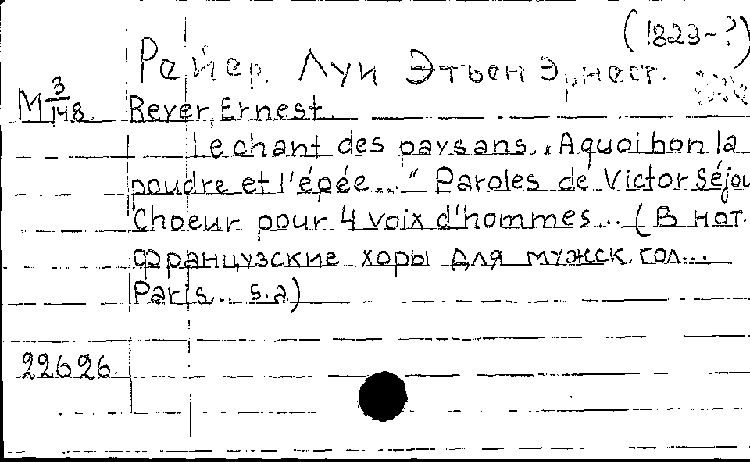 (1823-?)
Рейер, Луи Этьен Эрнест.
М 3/148 Reyer, Ernest.
Le chant des paysans. „A quoi bon la
poudre et l'épée..." Paroles de Victor Séjou
Choeur pour 4 voix d'hommes... (В нот.
французские хоры для мужск. гол...
Paris.. s.a)
22626